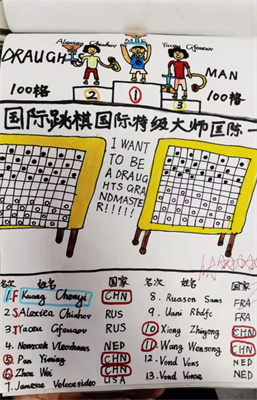 Alexiea Chizhov
Yacey Cfeeuov
DRAUGH
MAN
100格
2
1
3
100格
国际跳棋国际特级大师国际一
I WANT
TO BE
A DRAUG
HTS GRA
NDMASTE
R!!!!!
名次 姓名 国家
1. Kuang Chenyi CHN
2. Alexiea Chizhov RUS
3. Yaceu Cfeeuov RUS
4. Nomzcek Vleoxhoms NED
5. Pan Yiming CHN
6. Zhou Wei CHN
7. Jamesea Velocesideo USA
名次. 姓名 国家
8. Ruason Sans FRA
9. Uoni Rbdfc FRA
10 Xiong Zhiyong CHN
11. Wang Wensong CHN
12. Vond Vons NED
13. Vond Vonse NED